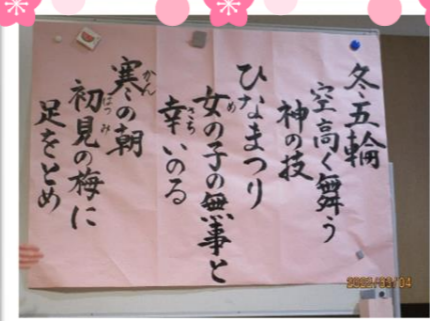 冬五輪
空高く舞う
神の技
ひなまつり
女の子の無事と
め
幸いのる
さち
寒の朝
かん
初見の梅に
はつみ
足をとめ